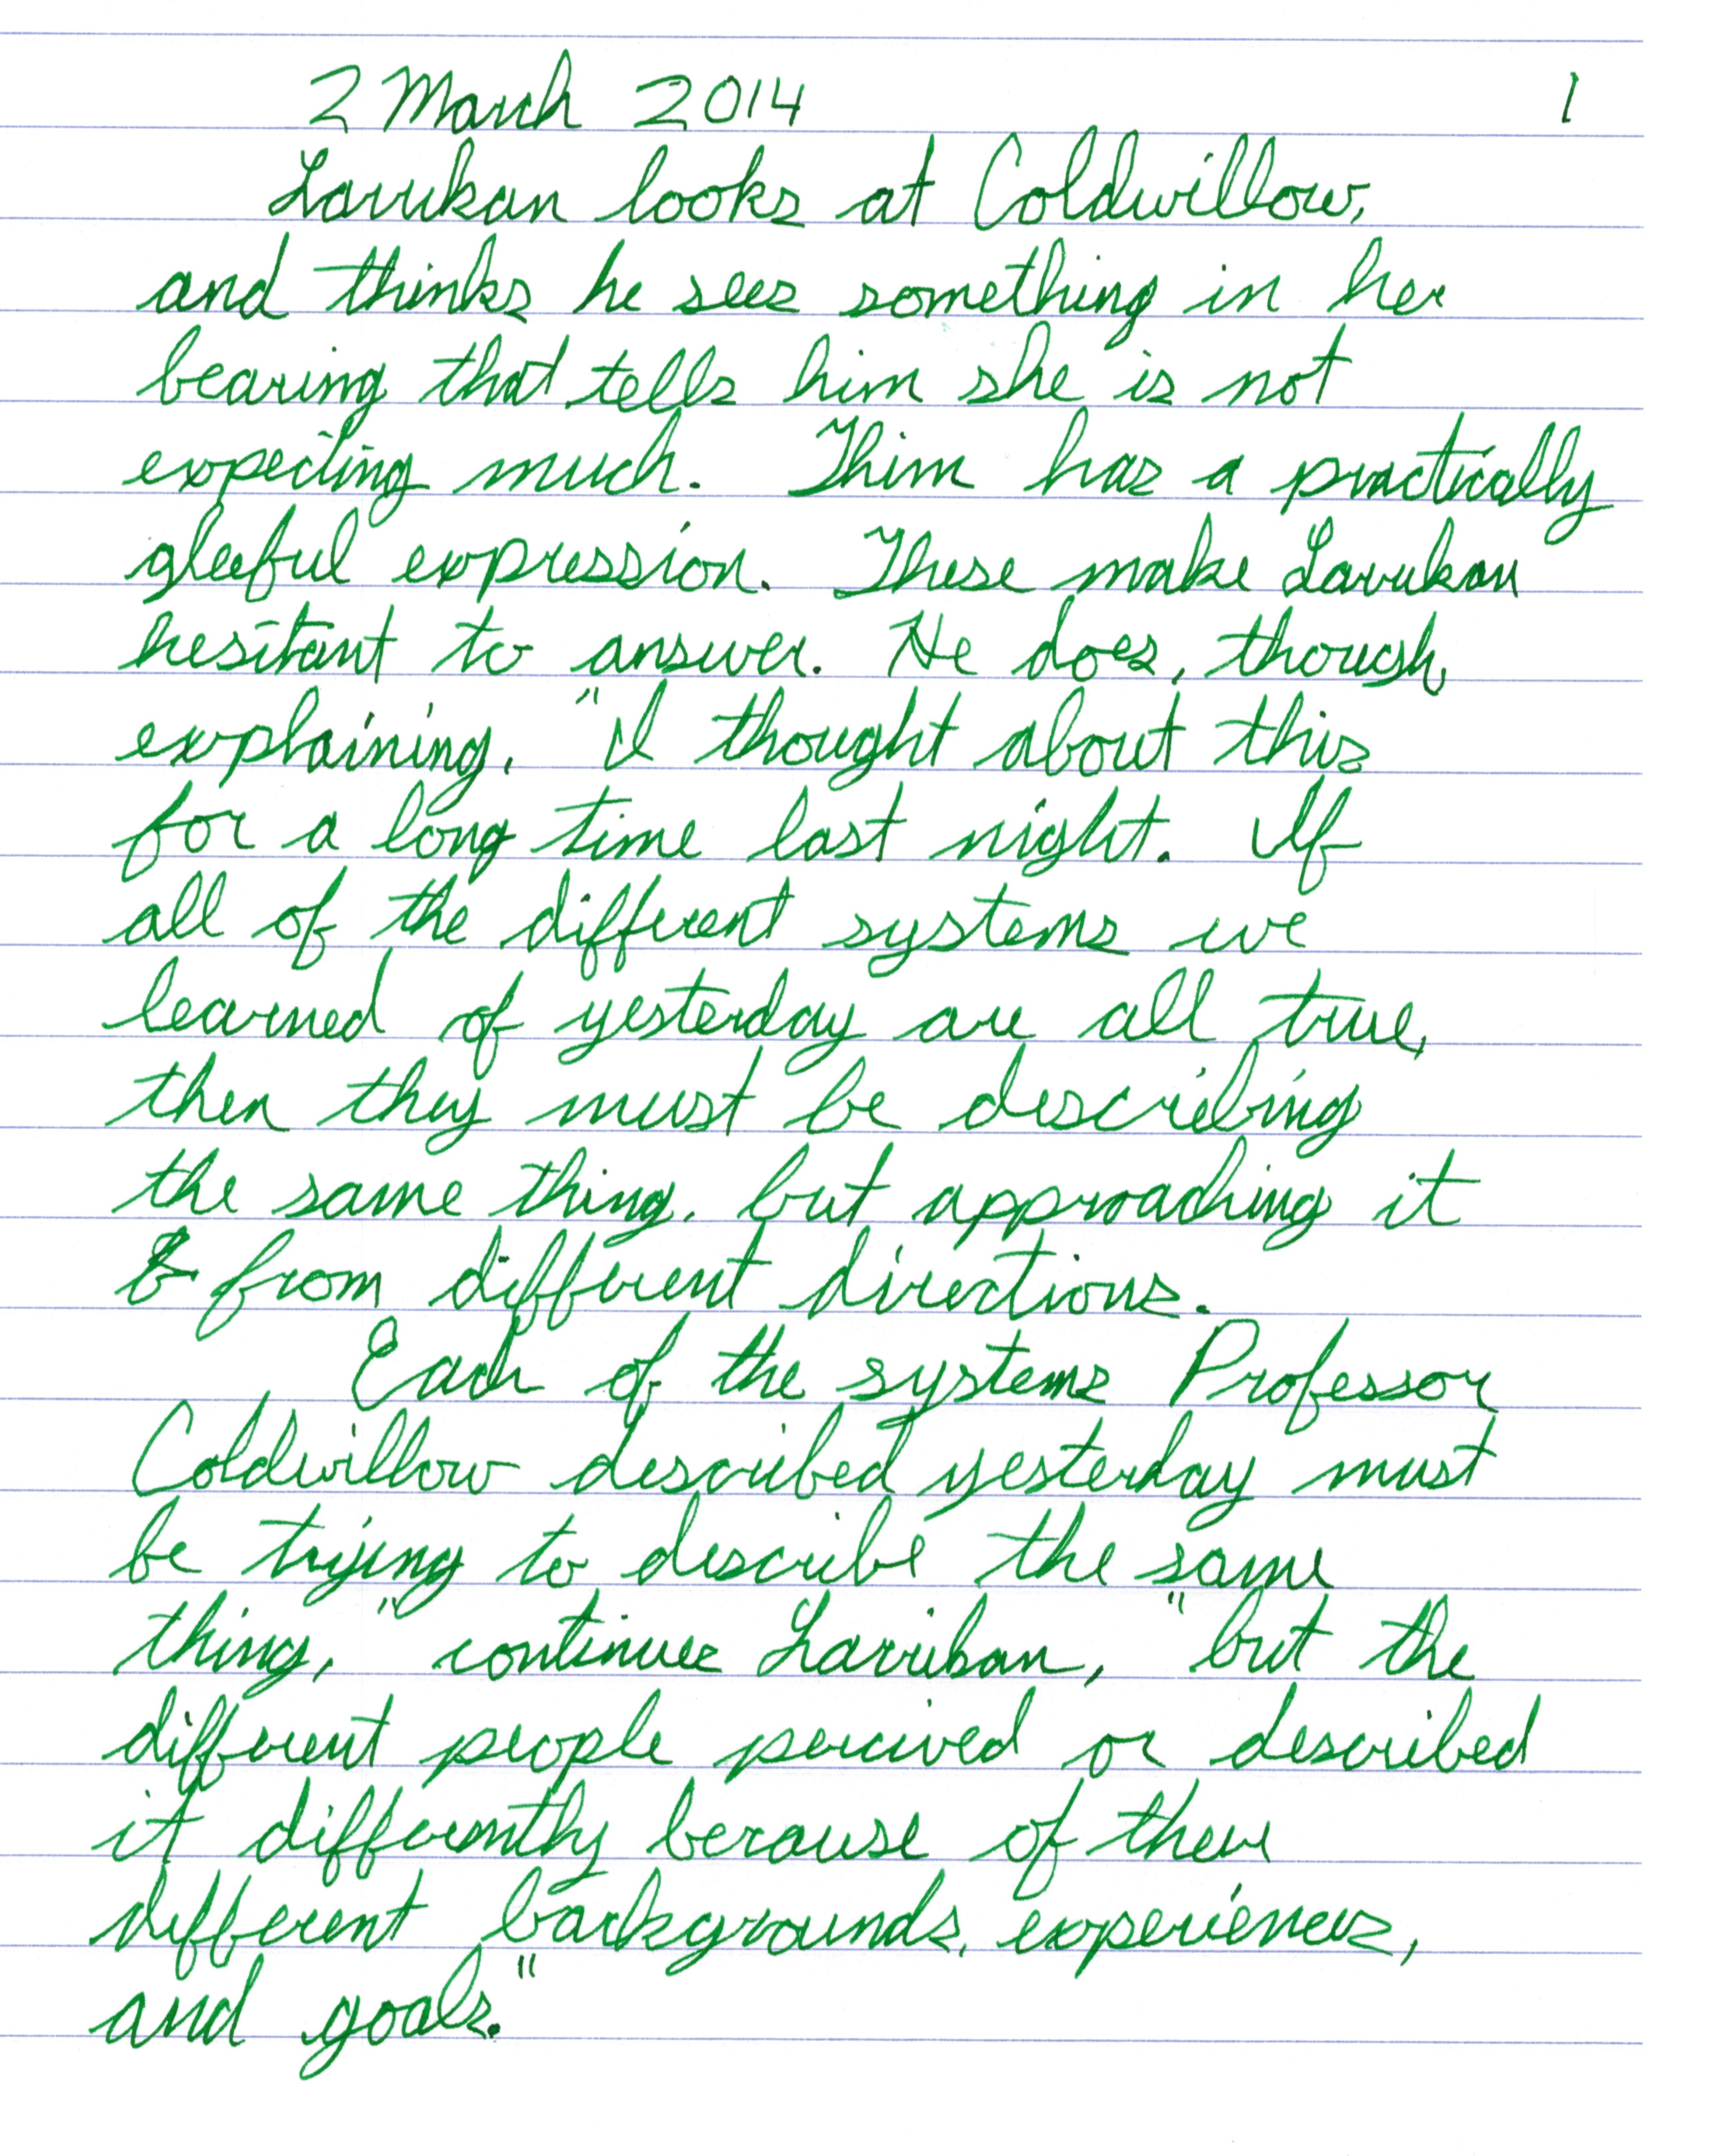 2 March 2014 1
Larukan looks at Coldwillow,
and thinks he sees something in her
bearing that tells him she is not
expecting much. Thim has a practically
gleeful expression. These make Larukan
hesitant to answer. He does, though,
explaining, "I thought about this
for a long time last night. If
all of the different systems we
learned of yesterday are all true,
then they must be describing
the same thing, but approaching it
from different directions.
Each of the systems Professor
Coldwillow described yesterday must
be trying to describe the same
thing," continues Larukan, "but the
different people percived or described
it differently because of their
different backgrounds, experiences,
and goals."